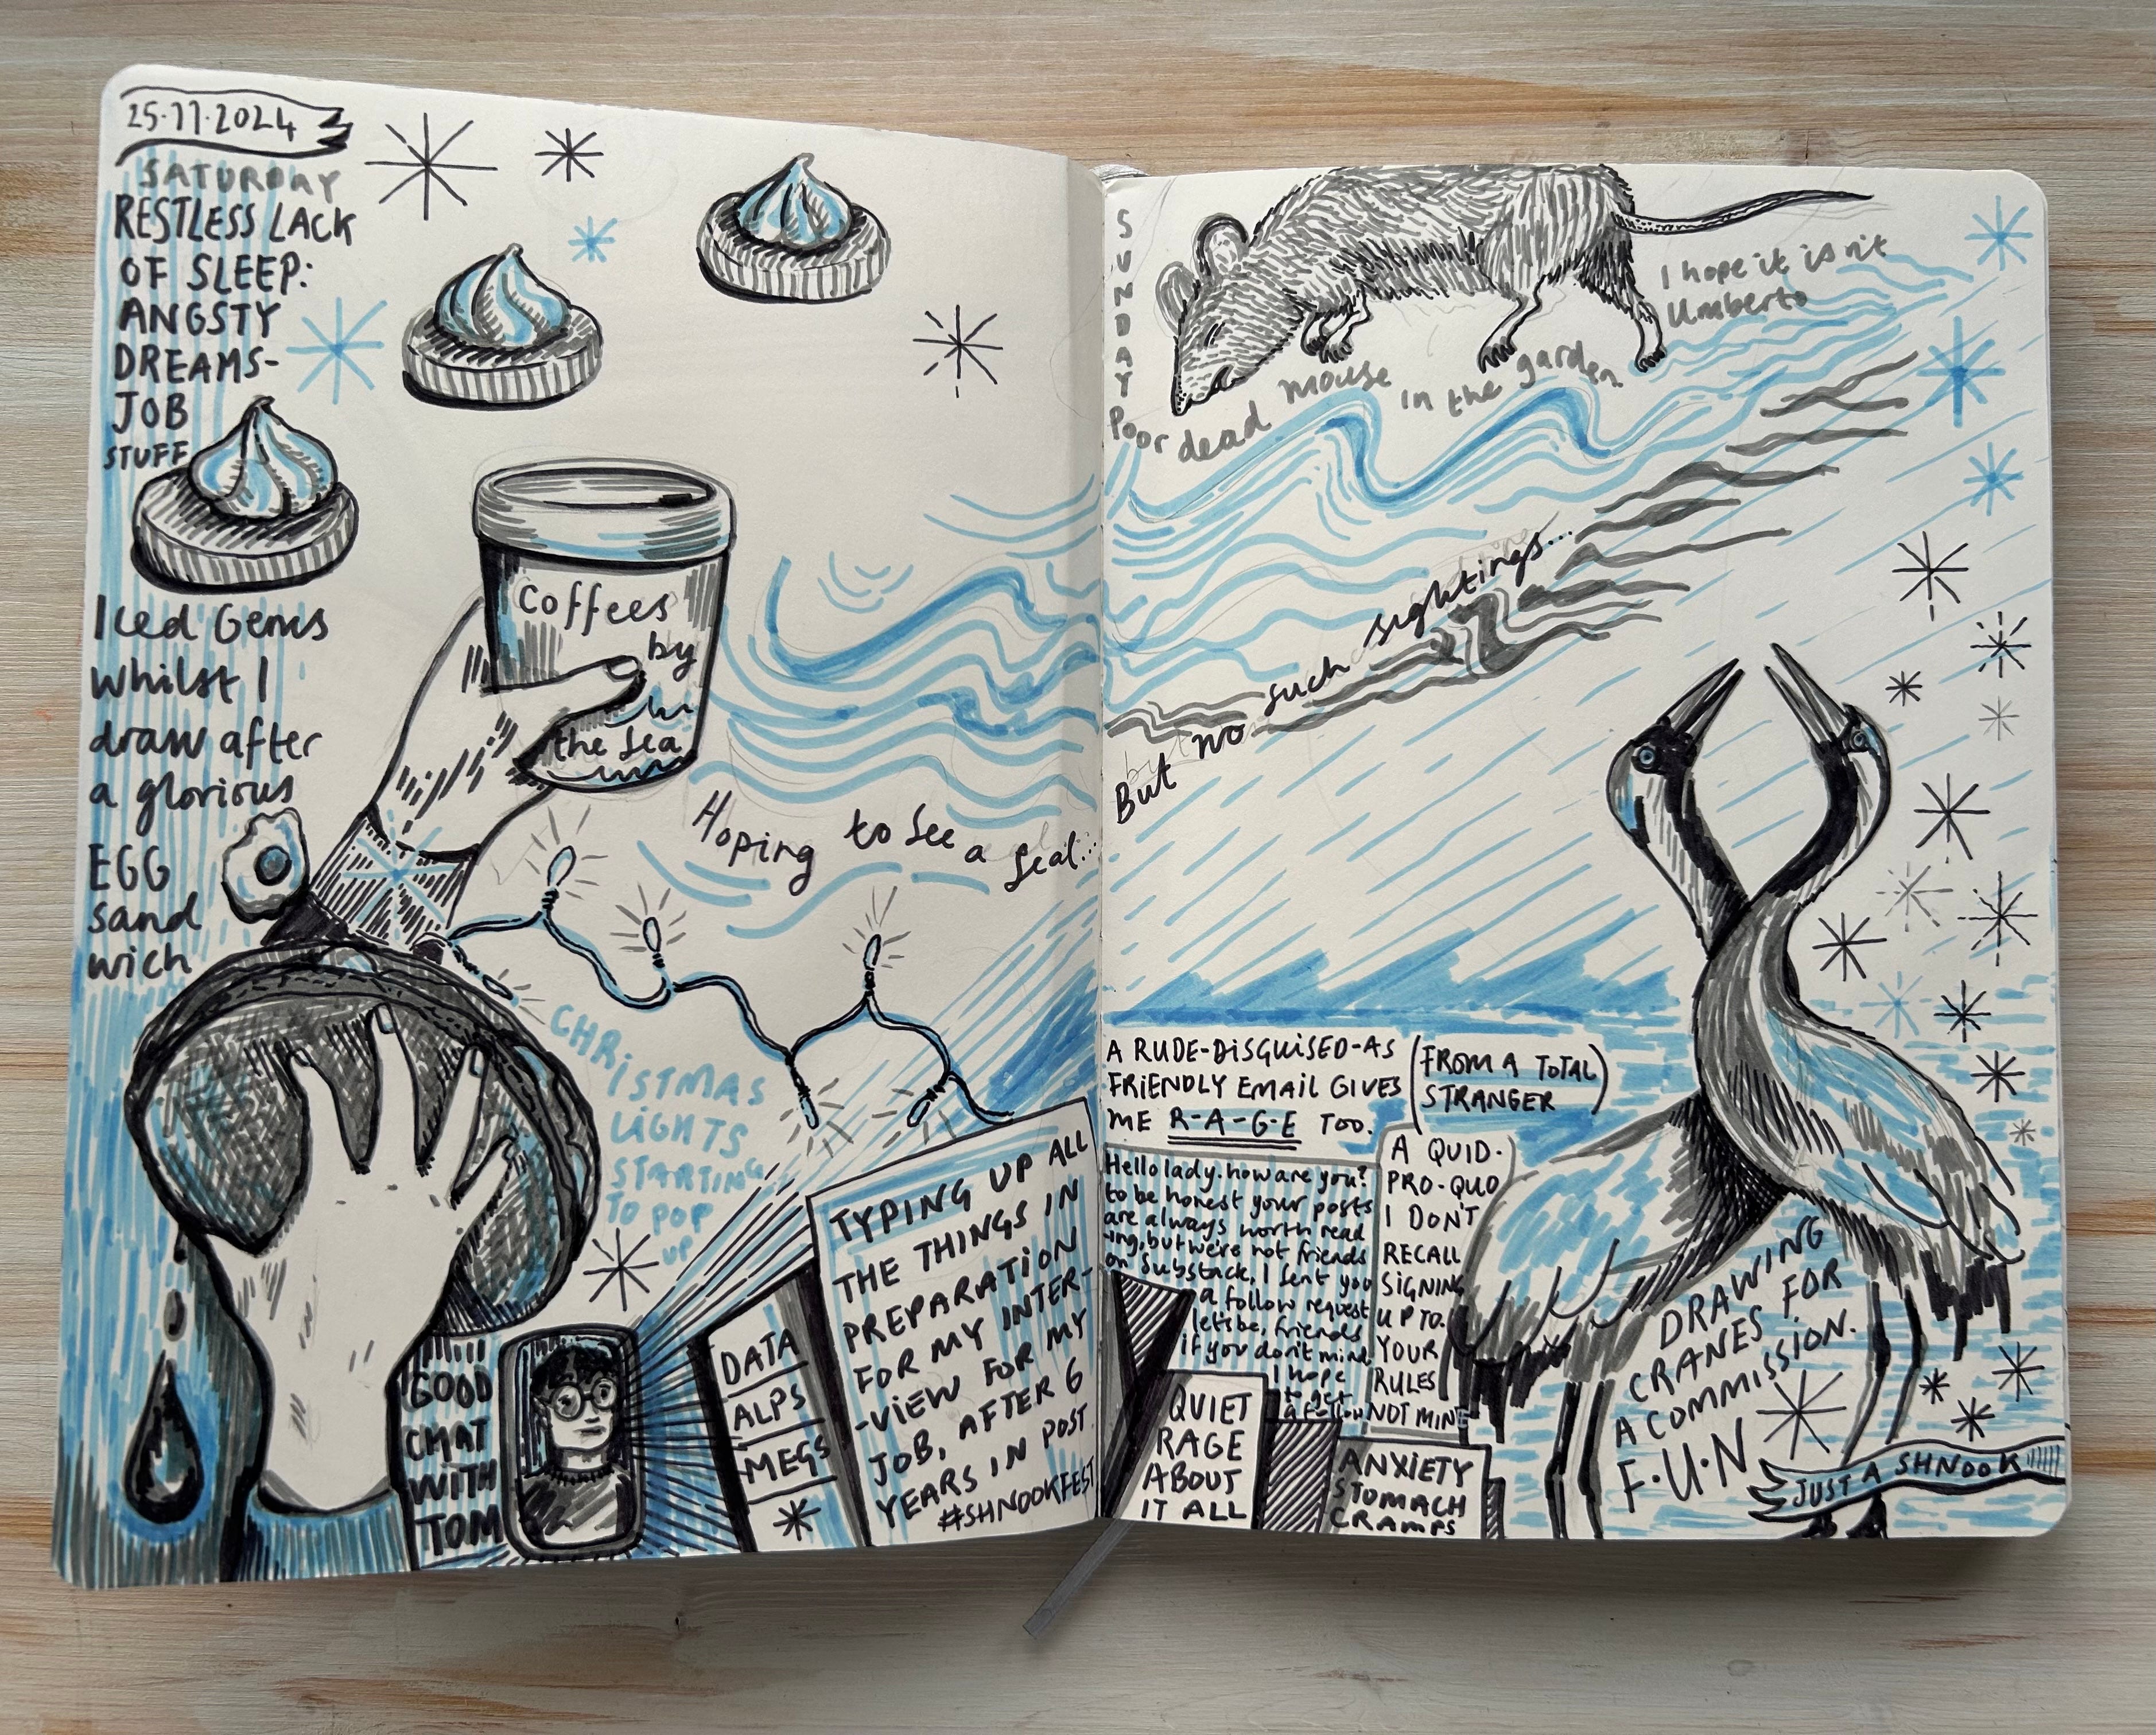 25.11.2024
SATURDAY
RESTLESS LACK
OF SLEEP:
ANGSTY
DREAMS-
JOB
STUFF
Iced Gems
whilst I
draw after
a glorious
EGG
sand
wich
Coffees
by
the sea
Hoping to see a seal...
CHRISTMAS
LIGHTS
STARTING
TO POP
UP
GOOD
CHAT
WITH
TOM
DATA
ALPS
MEGS
TYPING UP ALL
THE THINGS IN
PREPARATION
FOR MY INTER-
-VIEW FOR MY
JOB, AFTER 6
YEARS IN POST.
#SHNOOKFEST
SUNDAY
Poor dead mouse in the garden
I hope it isn't
Umberto
But no such sightings...
A RUDE-DISGUISED-AS
FRIENDLY EMAIL GIVES
ME R-A-G-E TOO.
(FROM A TOTAL
STRANGER)
Hello lady. how are you?
to be honest your posts
are always worth read
-ing, but we're not friends
on Substack, I sent you
a follow request
lets be, friends
if you don't mind
I hope
to get
a follow
A QUID-
PRO-QUO
I DON'T
RECALL
SIGNING
UP TO.
YOUR
RULES
NOT MINE
QUIET
RAGE
ABOUT
IT ALL
ANXIETY
STOMACH
CRAMPS
DRAWING
CRANES FOR
A COMMISSION.
F.U.N
JUST A SHNOOK